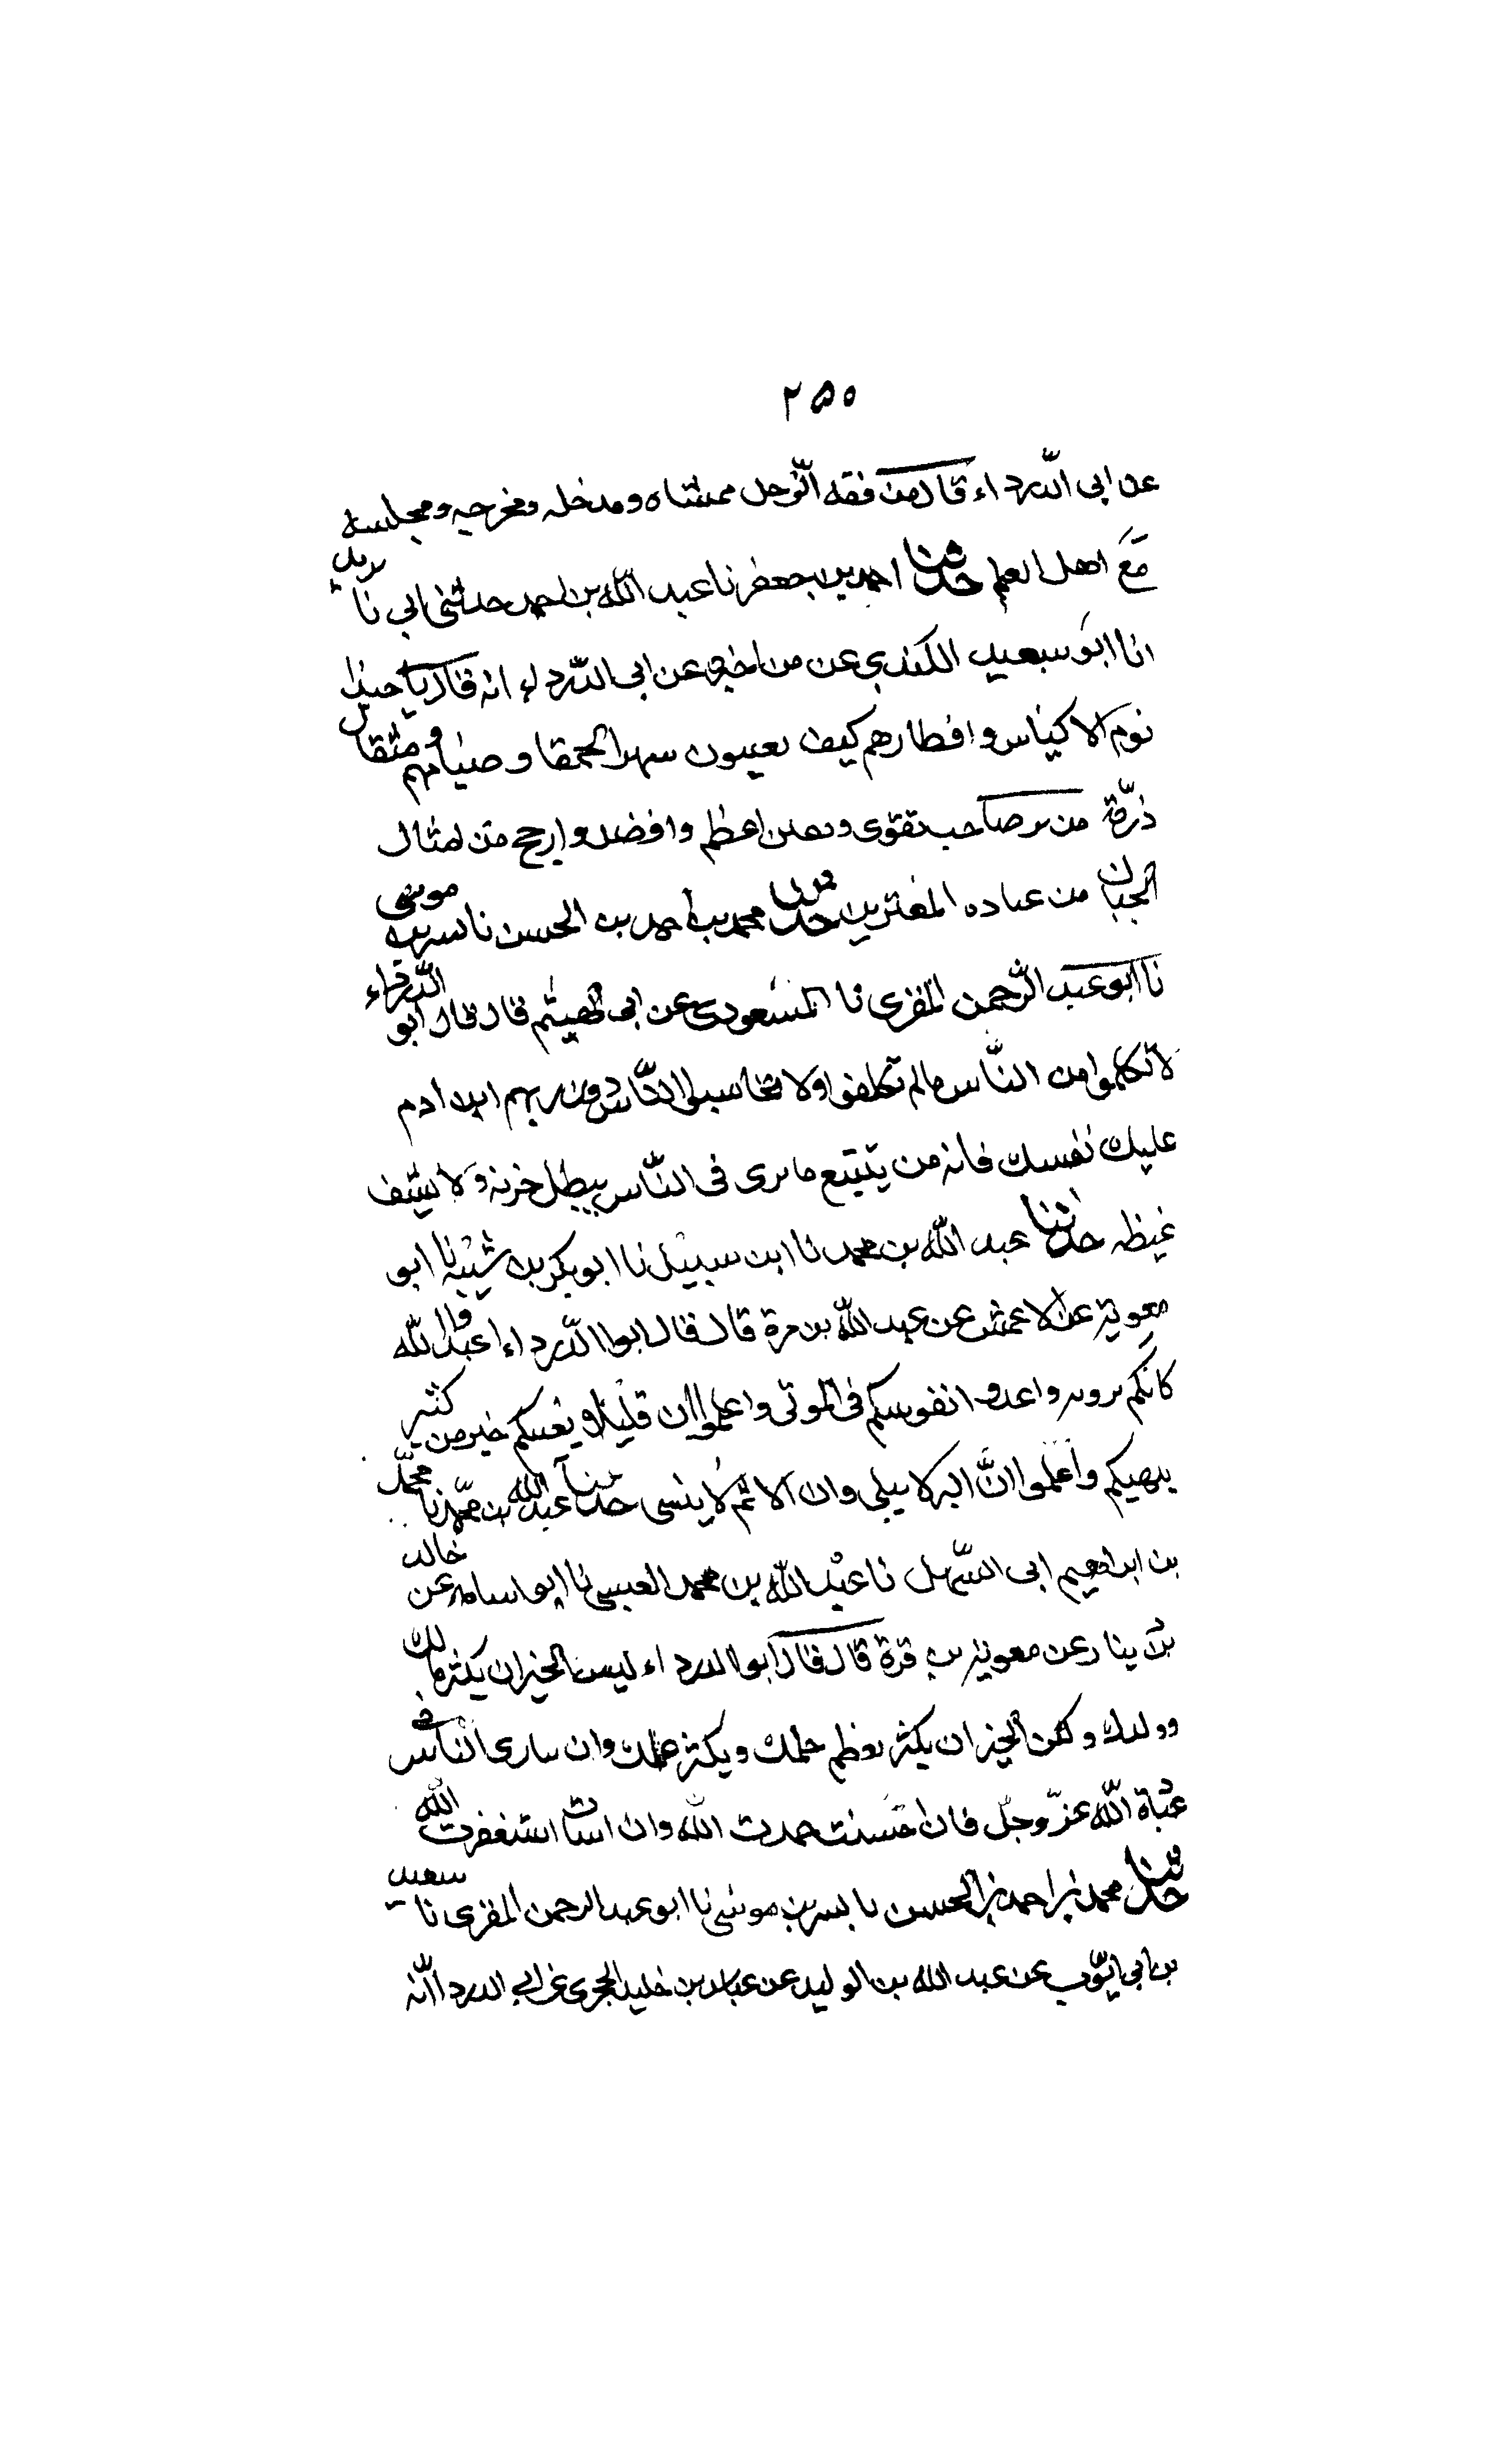 ٢٥٥
عن ابى الدّرداء قال من فقه الرّجل ممشاه ومدخله ومخرجه ومجلسه
مَعَ اهل العلم حدثنا احمد بن جعفر نا عبد اللّه بن احمد حدثنى ابى نا يزيد
انا ابو سعيد الكندى عن من اخبره عن ابى الدّرداء انه قال يا حبذا
نوم الاكياس وافطارهم كيف يعيبون سهر الحمقا وصيامهم ومثقال
ذرّة من بر صاحب تقوى ويقين اعظم وافضل وارجح من امثال
الجبال من عباده المغترين حدثنا محمد بن احمد بن الحسن نا بسر بن موسى
نا ابو عبد الرّحمن المقرى نا المسعودى عن ابى الهيثم قال قال ابو الدّرداء
لا تكلموا من النّاس مالم تكلفوا ولا تحاسبوا النّاس دون ربهم ابن ادم
عليك نفسك فانه من يتبتع ما يرى فى النّاس يبطل حزنه ولا يشف
غيظه حدثنا عبد اللّه بن محمد نا ابن سبيل نا ابو بكر بن شيبه نا ابو
معوية عن الاعمش عن عبد اللّه بن مرة قال قال ابوا الدّرداء اعبدوا اللّه
كانكم ترونه واعدوا انفوسكم فى الموتى واعلموا ان قليلا يغنيكم خير من كثير
يلهيكم واعلموا انّ البر لا يبلى وان الاثم لا ينسى حدثنا عبد اللّه بن محمّد نا محمّد
بن ابراهيم ابى السّهل نا عبد اللّه بن محمد العبسى نا ابو اسامه عن خالد
بن دينار عن معوية بن قرة قال قال ابوا الدرداء ليس الخير ان يكثر مالك
وولدك ولكن الخير ان يكثر يعظم حلمك ويكثر عملك وان سارى النّاس فى
عبادة اللّه عزّ وجلّ فان احسنت حمدت اللّه وان اسات استغفرت اللّه
حدثنا محمد بن احمد بن الحسن نا بسر بن موسى نا ابو عبد الرحمن المقرى نا سعيد
بن ابى ايّوب عن عبد اللّه بن الوليد عن عباس بن خليد الحجرى عن ابى الدرداء انّه